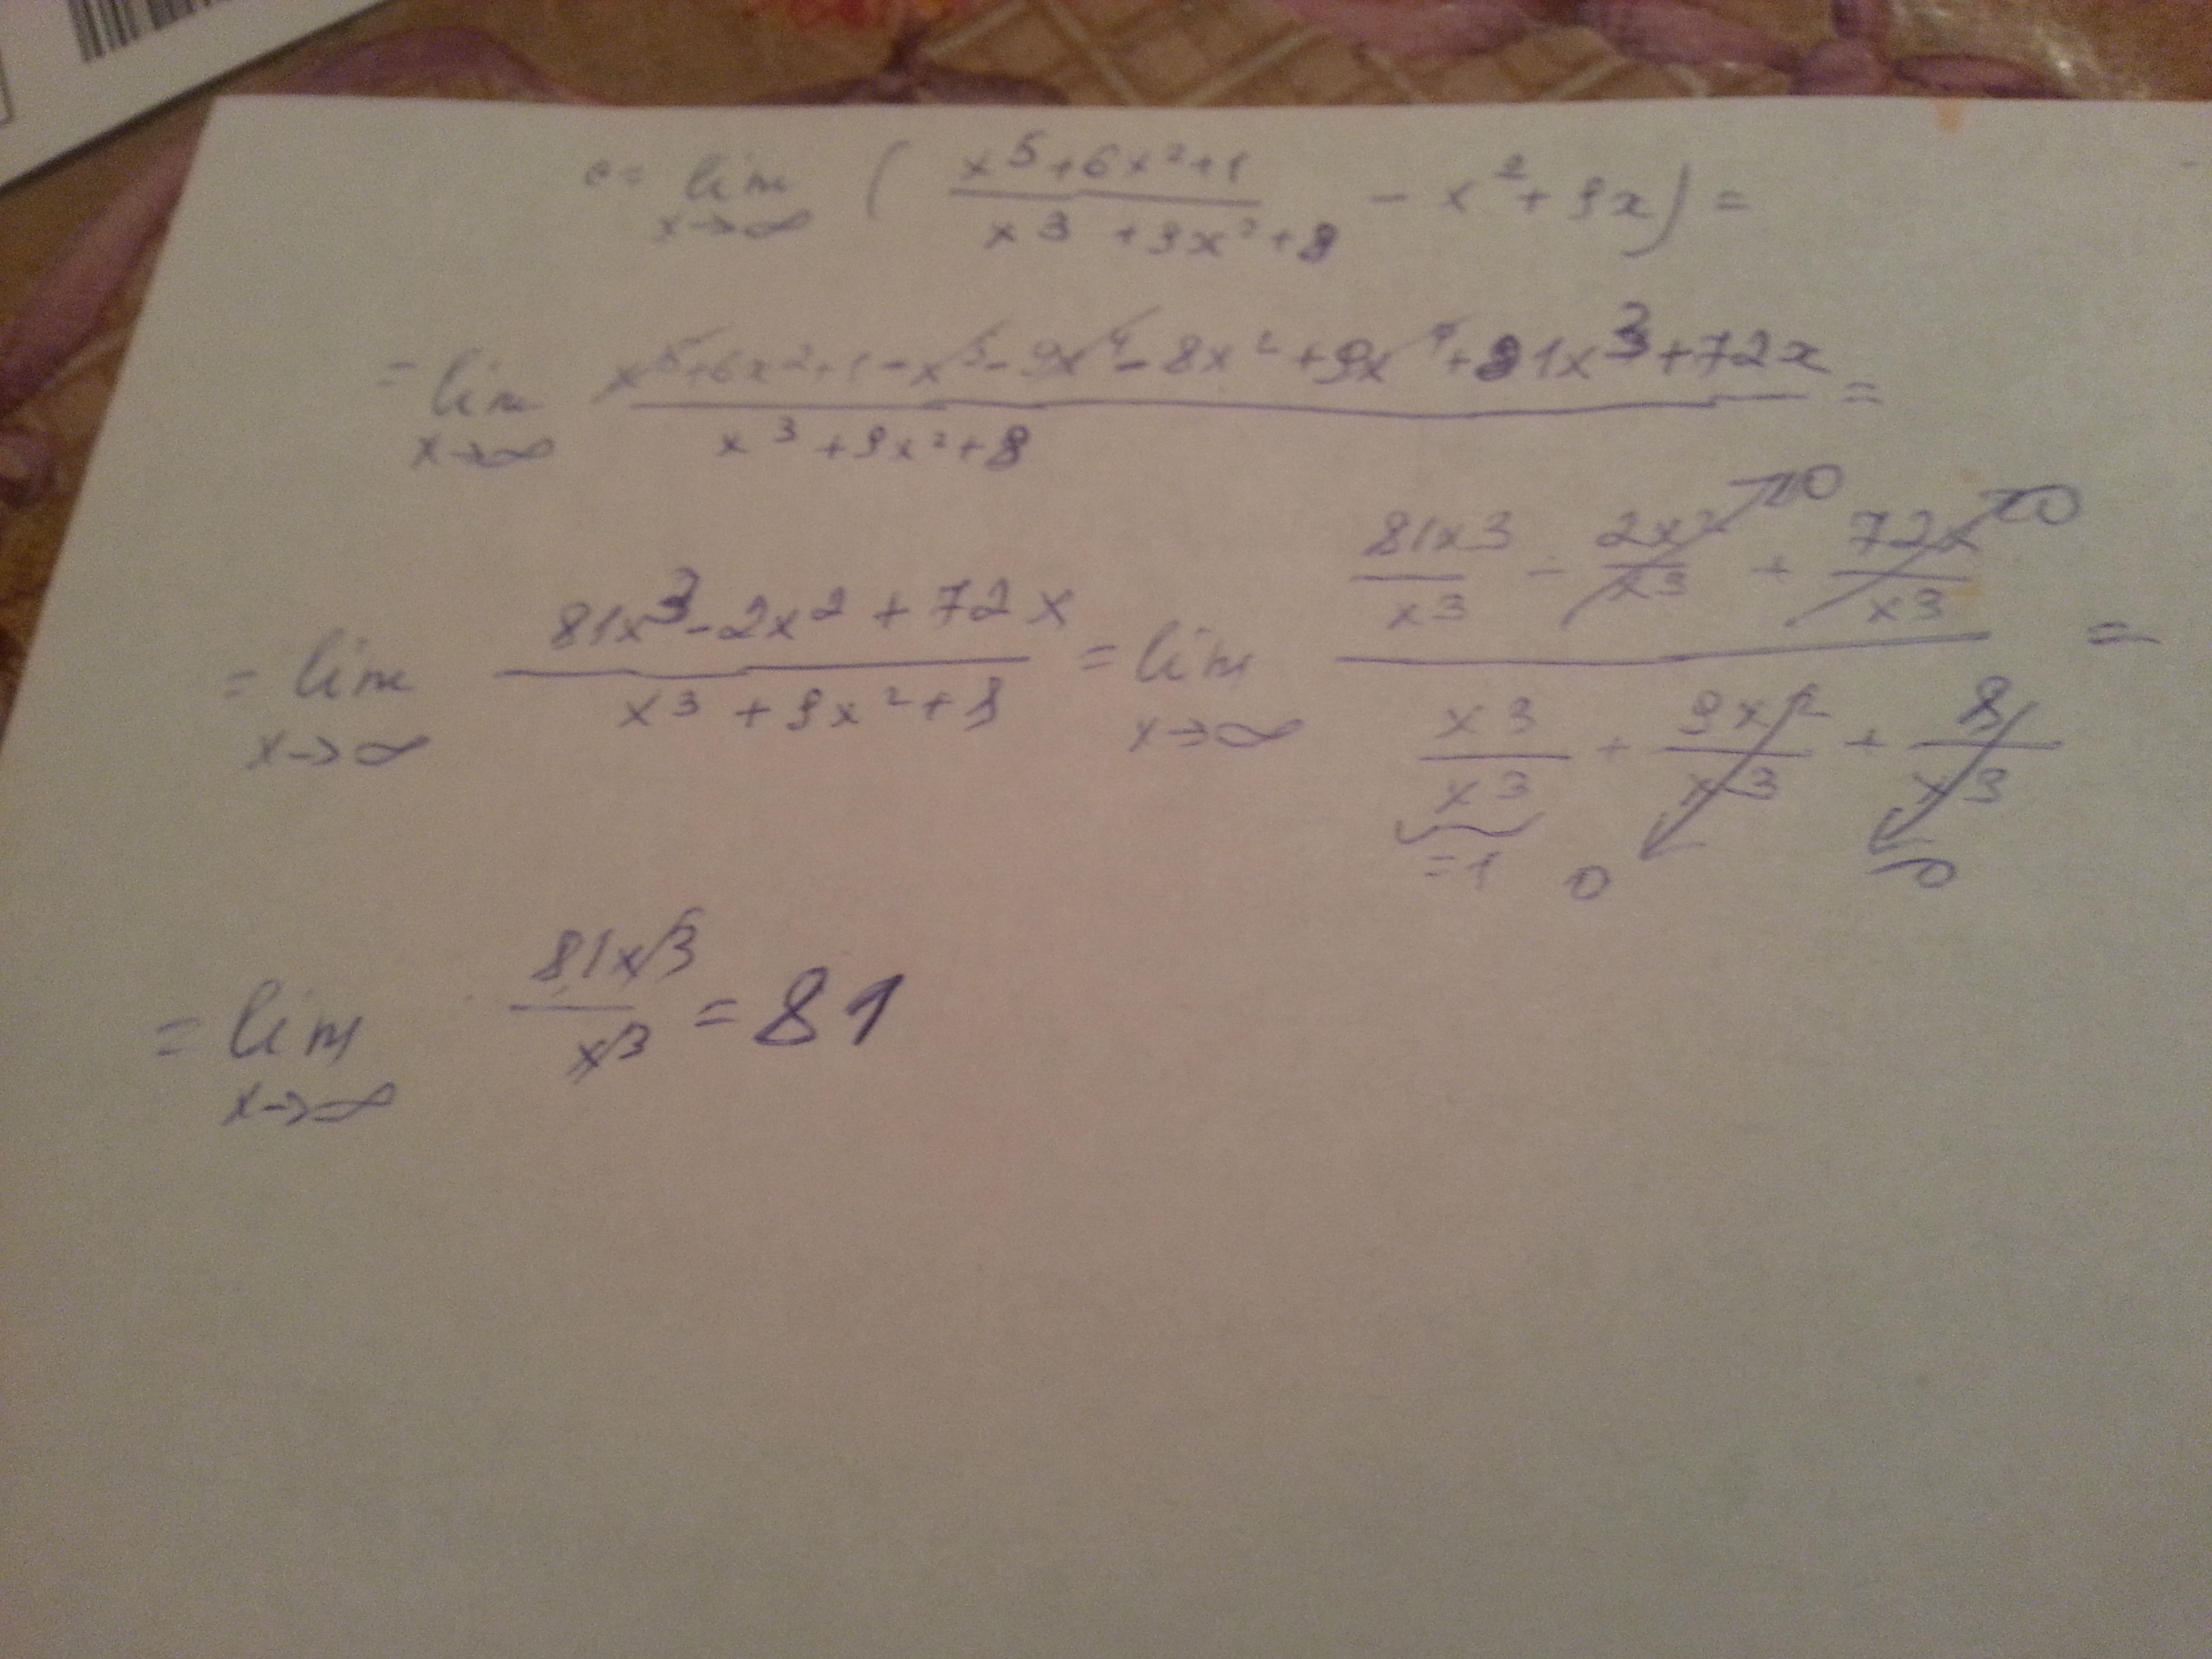 c = lim x→∞ ( (x^5+6x^2+1)/(x^3+9x^2+8) - x^2+9x) =
= lim x→∞ (x^5+6x^2+1-x^5-9x^4-8x^2+9x^4+81x^3+72x)/(x^3+9x^2+8) =
= lim x→∞ (81x^3-2x^2+72x)/(x^3+9x^2+8) = lim x→∞ (81x3/x3 - 2x^2/x3 →0 + 72x/x3 →0)/(x3/x3 =1 + 9x^2/x3 0 + 8/x3 →0) =
= lim x→∞ 81x3/x3 = 81